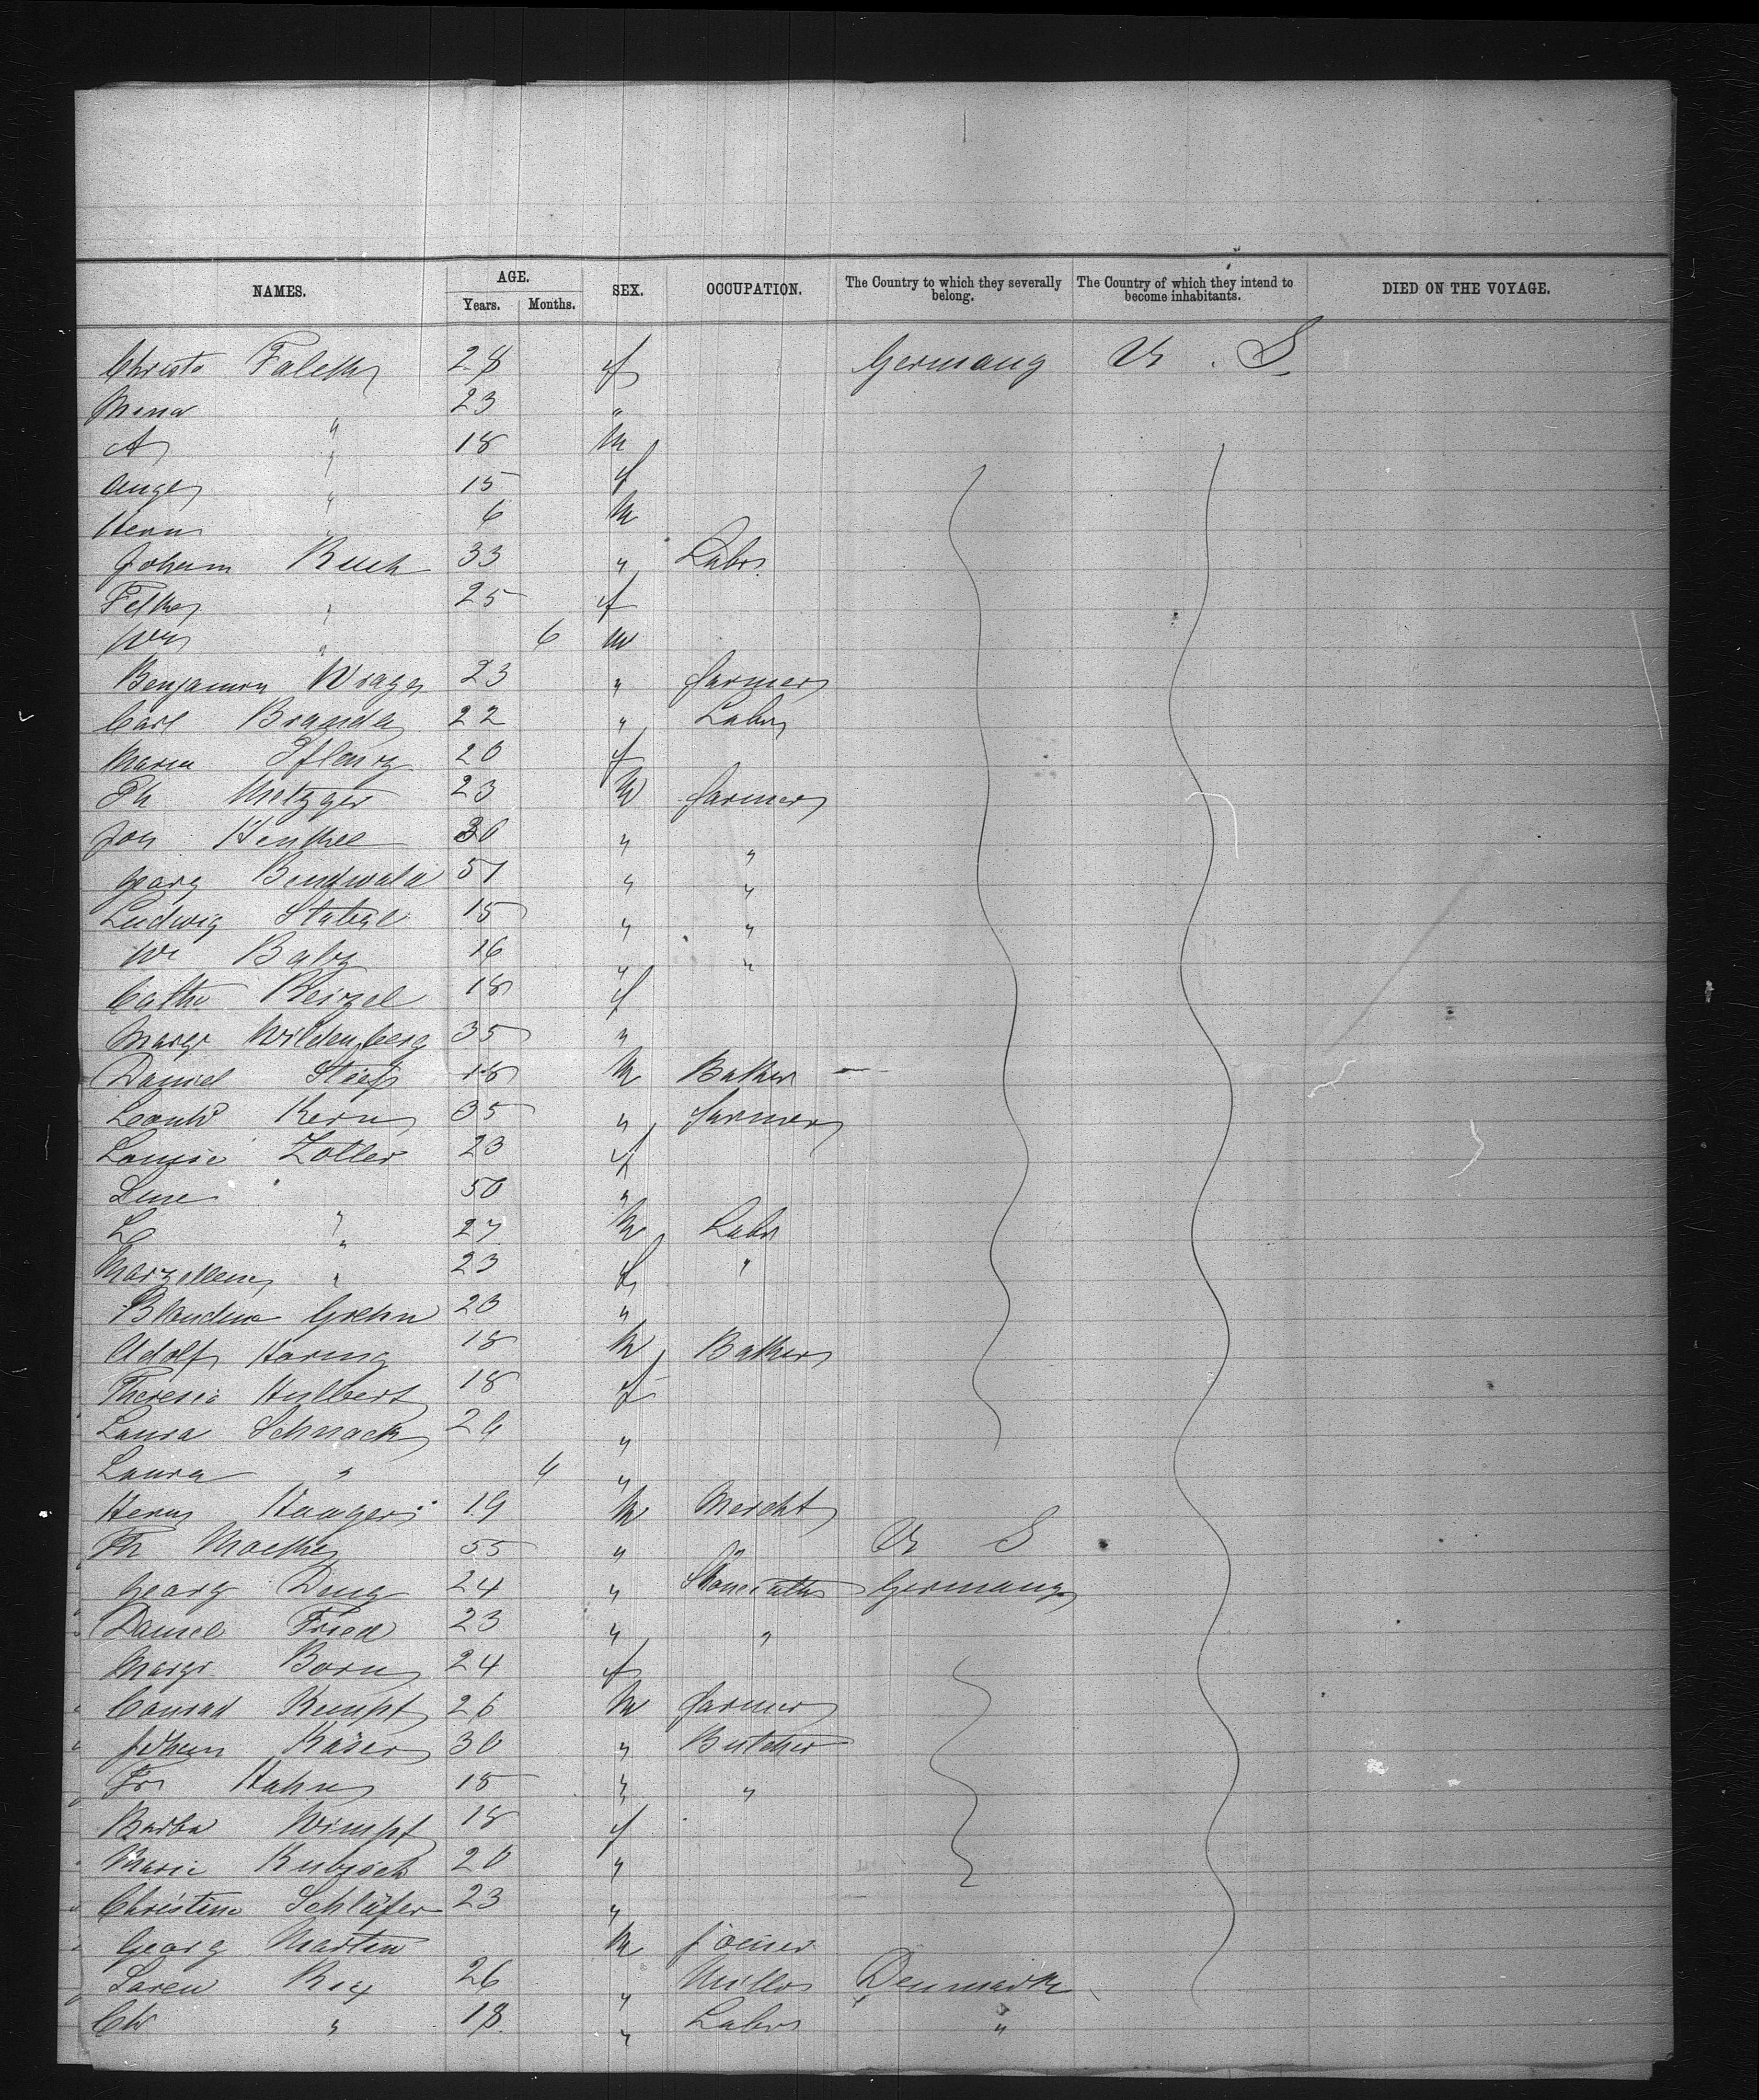 NAMES. AGE. SEX. OCCUPATION. The Country to which they severally belong. The Country of which they intend to become inhabitants. DIED ON THE VOYAGE.
Years. Months.
Christe 28 f Germany U. S.
Mena " 23 "
A " 18 M
Ange " 15 f
Herm " 6 M
Johann Ruch 33 " Labr
" 25 f
Wm " 6 m
Benjamin Wragg 23 " farmer
Carl Branda 22 " Labr
Maria 20 f
Ph Metzger 23 M farmer
Jon Henkel 30 " "
Georg 51 " "
Ludwig 15 " "
Wr Baly 16 " "
Cathe Reizel 18 f
Margr Wildenberg 35 "
Daniel 18 M Baker
Leonhd Kern 35 " farmer
Louise Zoller 23 f
Line " 50 "
L " 27 M Labr
" 23 f "
Blandine Grehn 23 "
Adolf Haring 18 M Baker
Theresia Hulbert 18 f
Laura Schnack 24 "
Laura " 6 "
Herm Haager 19 M Mercht
Th 55 " U S
Georg 24 " Stonecutter Germany
Daniel Fried 23 " "
Margr Born 24 f
Conrad Kempf 26 M farmer
Johan Käser 30 " Butcher
Fr Hahn 15 " "
Barba Wimpf 18 f
Marie 20 "
Christine Schläfer 23 "
Georg Martin M joiner
Soren Rix 26 " Miller Denmark
Chr " 18 " Labr "